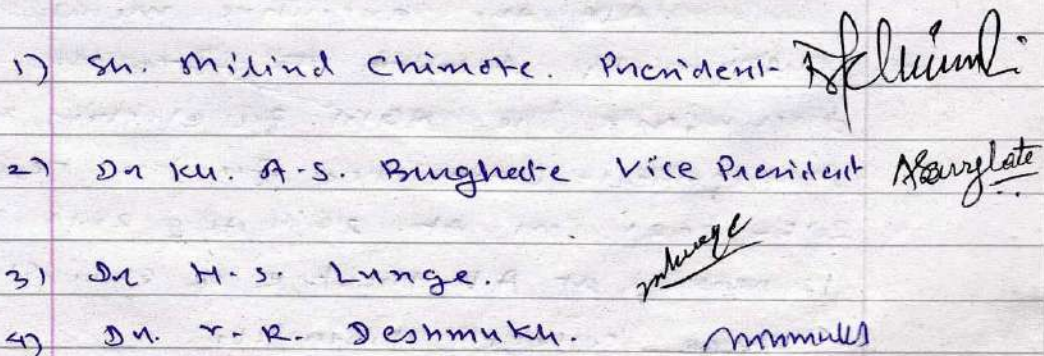 1) Sh. Milind Chimote. President
2) Dr Ku. A.S. Burghate Vice President ASBurghate
3) Dr H.S. Lunge.
4) Dr. V.R. Deshmukh.